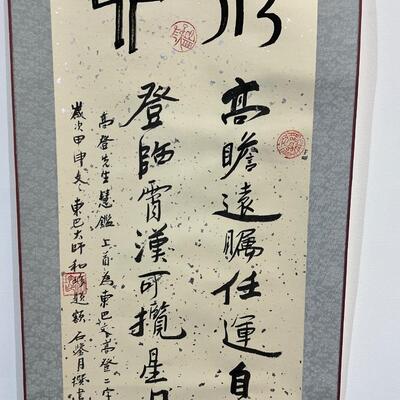 高瞻遠矚任運自
登臨霄漢可攬星
高登先生慧鑑 上首為東巴文高登二字
歲次甲申冬 東巴大師和 題額 石學月撰書